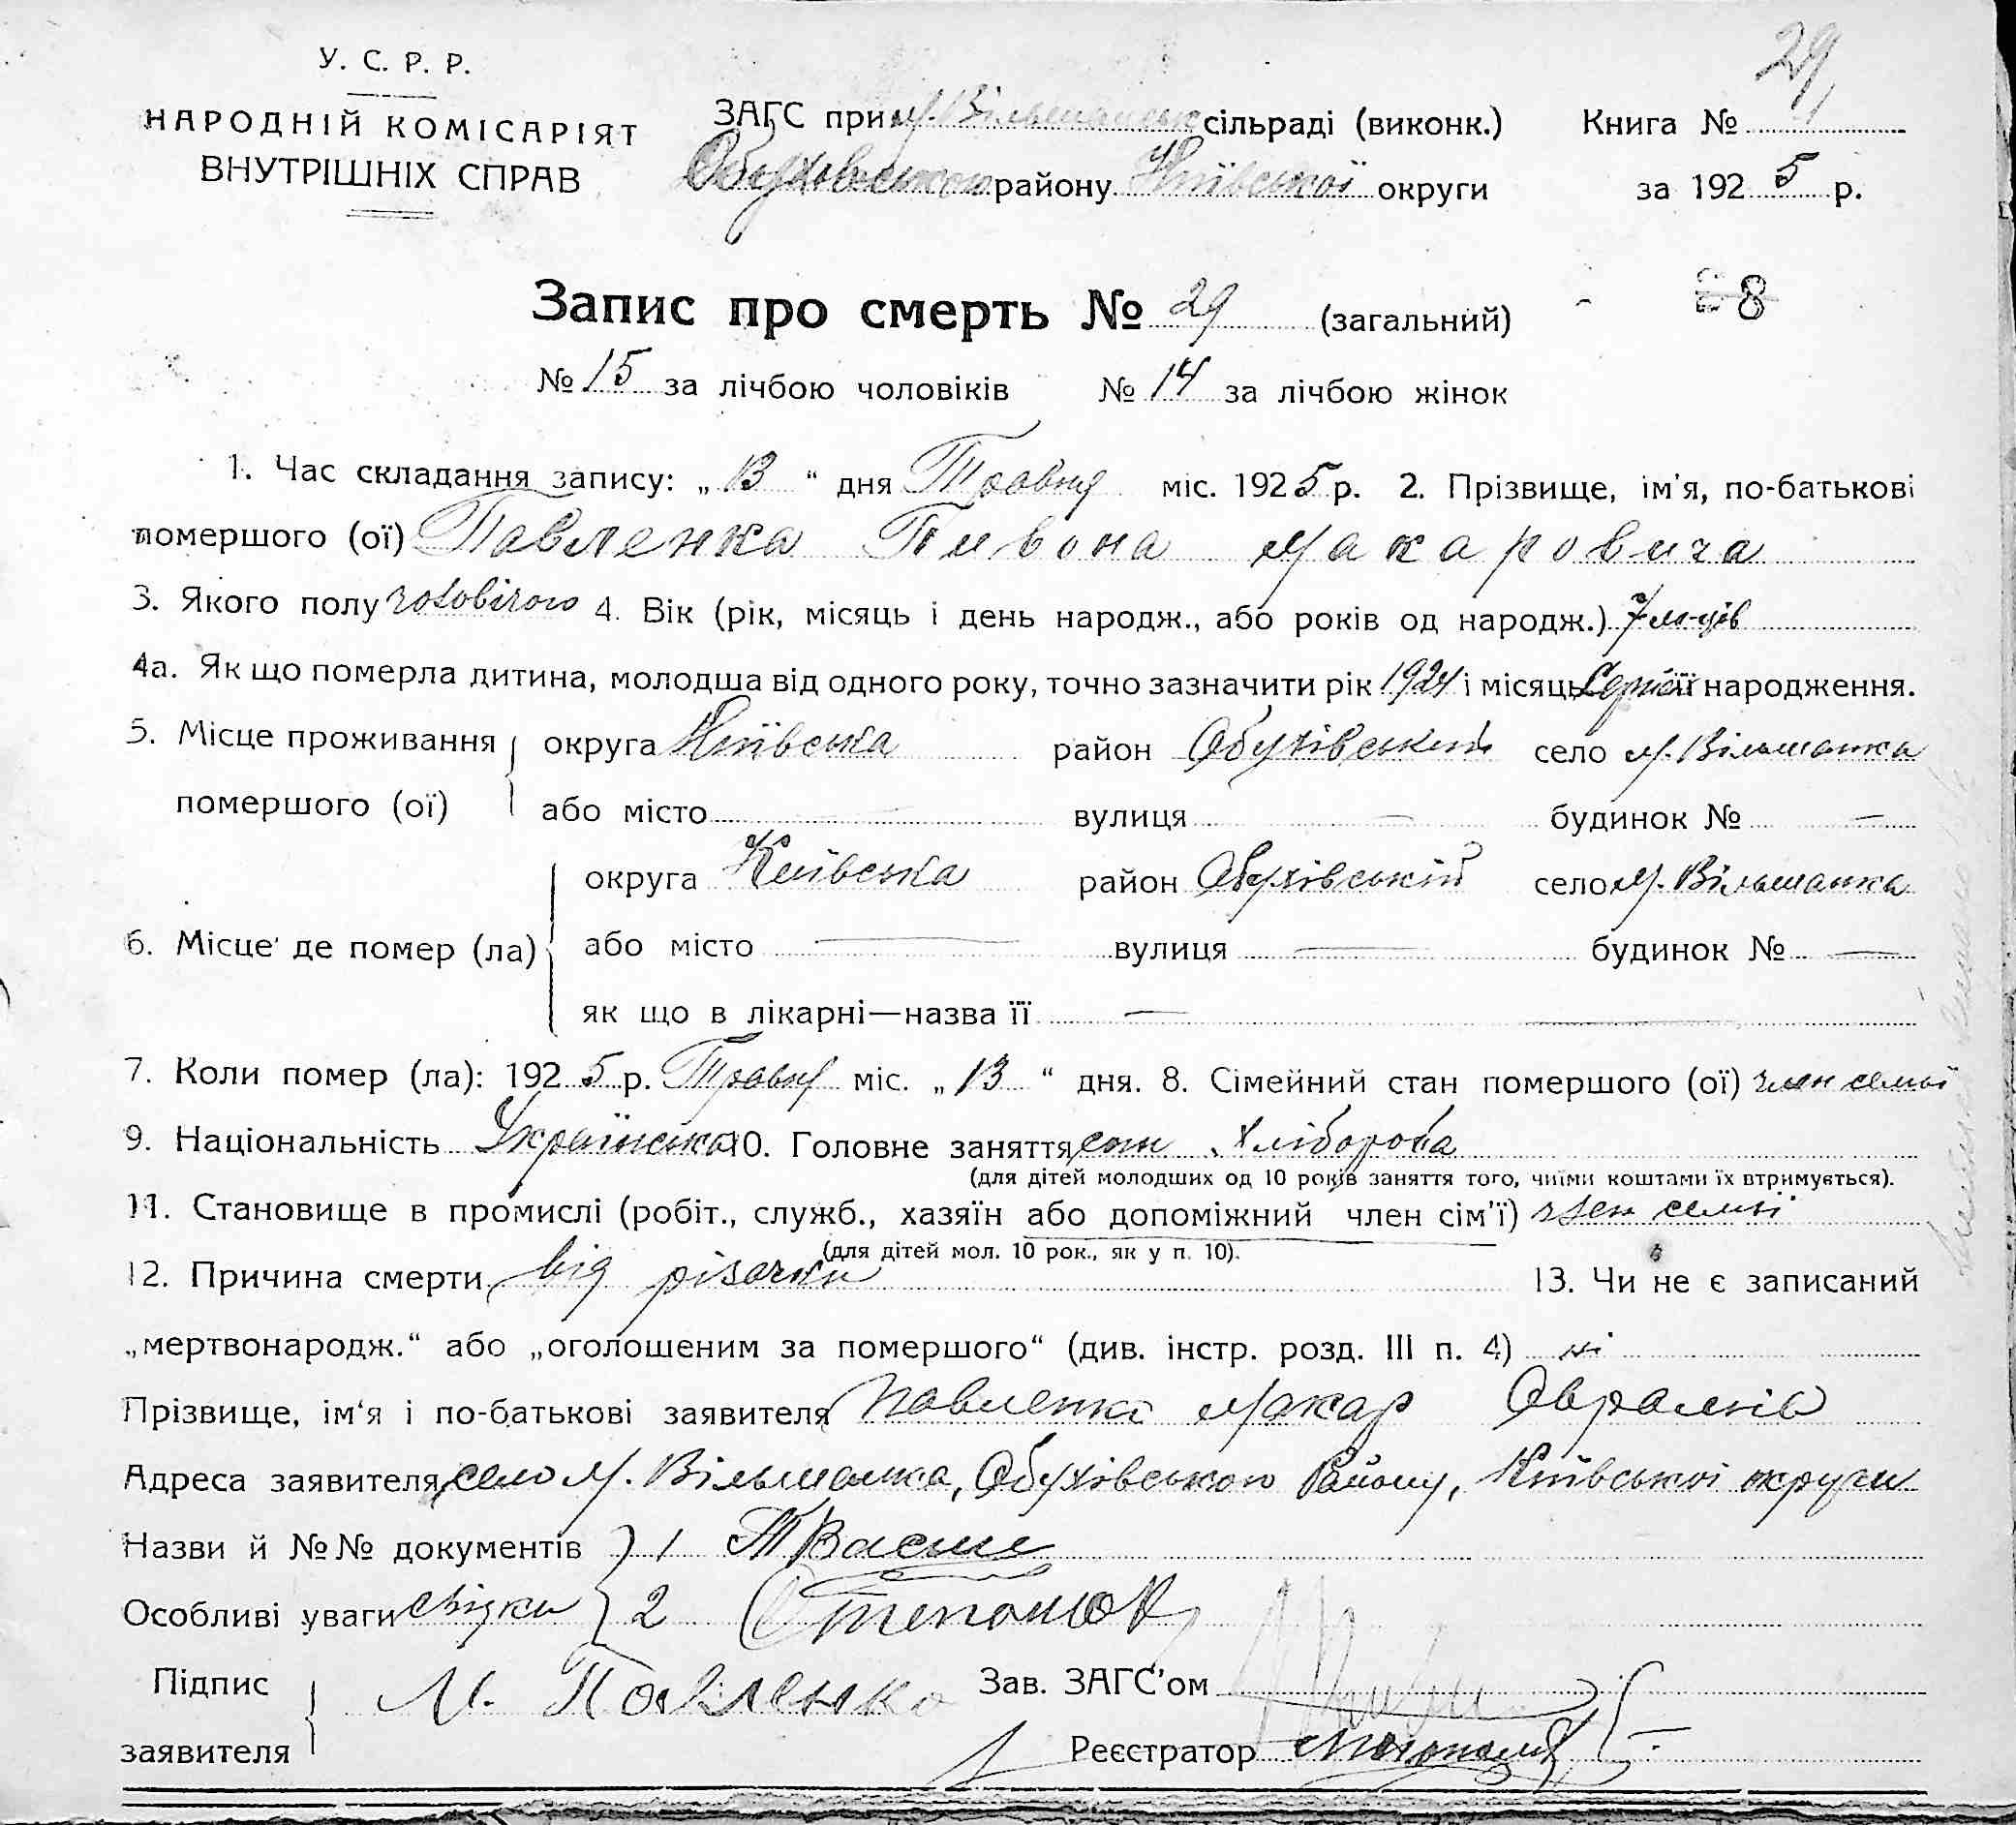 У. С. Р. Р.
НАРОДНІЙ КОМІСАРІЯТ
ВНУТРІШНІХ СПРАВ
ЗАГС при м. Вільшанськ сільраді (виконк.)
Обухівського району Київської округи
Книга № 29
за 1925 р.
Запис про смерть № 29 (загальний)
8
№ 15 за лічбою чоловіків № 14 за лічбою жінок
1. Час складання запису: „13“ дня Травня міс. 1925 р. 2. Прізвище, ім'я, по-батькові
помершого (ої) Павленка Пивона Макаровича
3. Якого полу чоловічого 4. Вік (рік, місяць і день народж., або років од народж.) 7 м-ців
4а. Як що померла дитина, молодша від одного року, точно зазначити рік 1924 і місяць її народження.
5. Місце проживання помершого (ої) округа Київська район Обухівський село м. Вільшанка
або місто — вулиця — будинок № —
6. Місце де помер (ла) округа Київська район Обухівський село м. Вільшанка
або місто — вулиця — будинок № —
як що в лікарні—назва її —
7. Коли помер (ла): 1925 р. Травня міс. „13“ дня. 8. Сімейний стан помершого (ої) член семьї
9. Національність Українська 10. Головне заняття син хлібороба
(для дітей молодших од 10 років заняття того, чиїми коштами їх втримується).
11. Становище в промислі (робіт., служб., хазяїн або допоміжний член сім'ї) член семьї
(для дітей мол. 10 рок., як у п. 10).
12. Причина смерти від різачки 13. Чи не є записаний
„мертвонародж.“ або „оголошеним за помершого“ (див. інстр. розд. III п. 4) ні
Прізвище, ім'я і по-батькові заявителя Павленко Макар
Адреса заявителя село м. Вільшанка, Обухівського Району, Київської округи
Назви й №№ документів 1
Особливі уваги свідки 2 Степанюк
Підпис заявителя М. Павленко Зав. ЗАГС'ом
Реєстратор